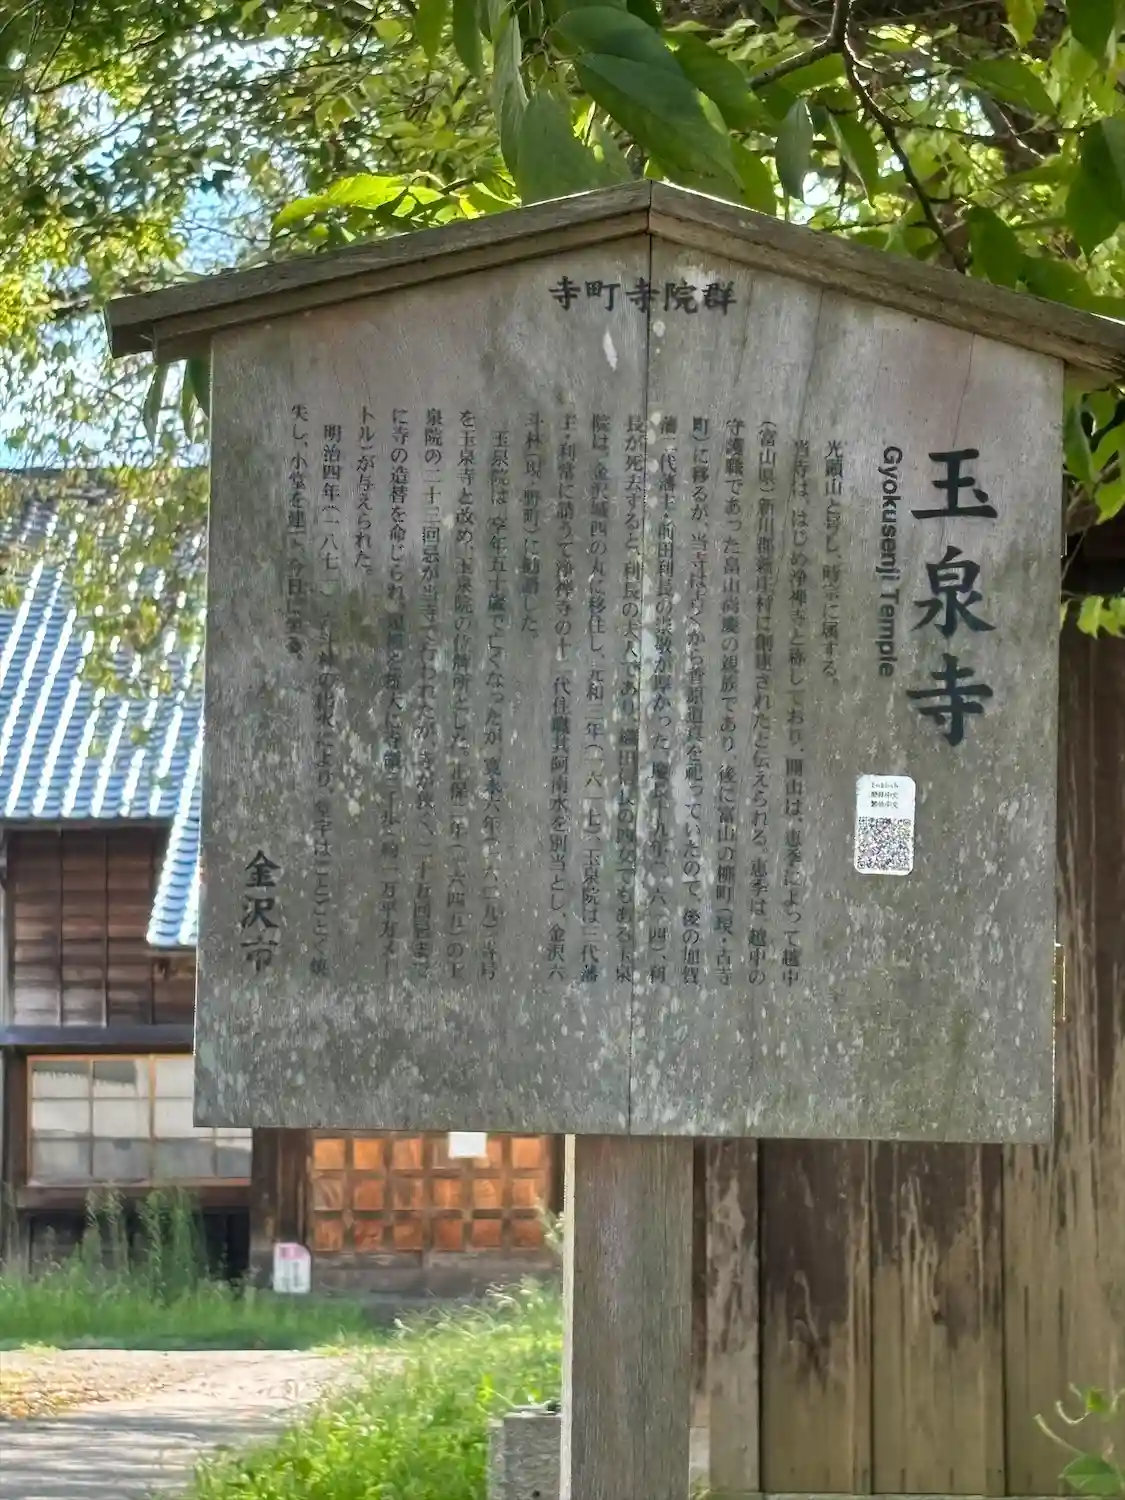 寺町寺院群
玉泉寺
Gyokusenji Temple
光顕山と号し、時宗に属する。
当寺は、はじめ浄禅寺と称しており、開山は、恵季によって越中
(富山県)新川郡新庄村に創建されたと伝えられる。恵季は、越中の
守護職であった畠山高慶の親族であり、後に富山の柳町(現・古寺
町)に移るが、当寺は古くから菅原道真を祀っていたので、後の加賀
藩二代藩主・前田利長の崇敬が厚かった。慶長十九年(一六一四)、利
長が死去すると、利長の夫人であり、織田信長の四女でもある玉泉
院は、金沢城西の丸に移住し、元和三年(一六一七)、玉泉院は三代藩
主・利常に請うて浄禅寺の十一代住職其阿南水を別当とし、金沢六
斗林(現・野町)に勧請した。
玉泉院は、享年五十歳で亡くなったが、寛永六年(一六二九)、寺号
を玉泉寺と改め、玉泉院の位牌所とした。正保二年(一六四五)の玉
泉院の二十三回忌が当寺で行われたが、寺が狭く、二十五回忌まで
に寺の造替を命じられ、
トル)が与えられた。
明治四年(一八七一)、六斗林の大火により、堂宇はことごとく焼
失し、小堂を建て、今日に至る。
金沢市
簡体中文
繁体中文